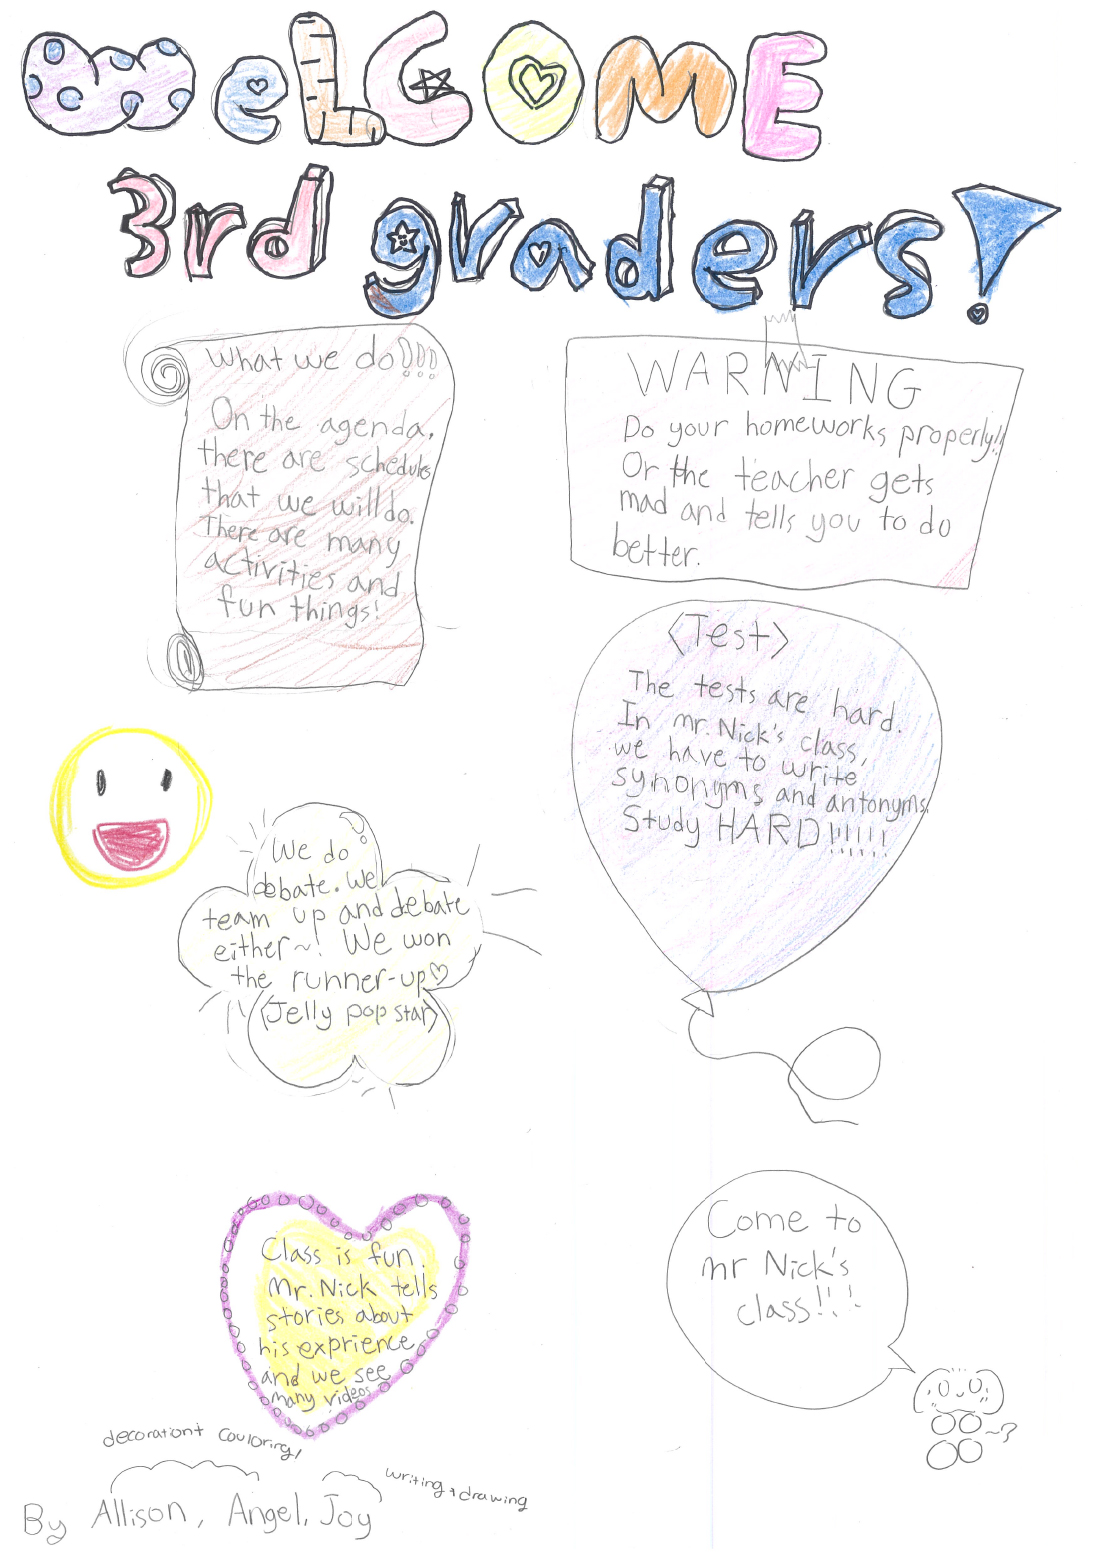 WeLCOME
3rd graders!
What we do!!!
On the agenda,
there are schedules
that we will do.
There are many
activities and
fun things!
WARNING
Do your homeworks properly!!
Or the teacher gets
mad and tells you to do
better.
<Test>
The tests are hard.
In mr. Nick's class,
we have to write
synonyms and antonyms.
Study HARD!!!!!!
We do
debate. We
team up and debate
either~! We won
the runner-up♡
(Jelly pop star)
Class is fun.
Mr. Nick tells
stories about
his exprience
and we see
many videos
Come to
mr Nick's
class!!!
decoration+ couloring,
writing + drawing
By Allison, Angel, Joy